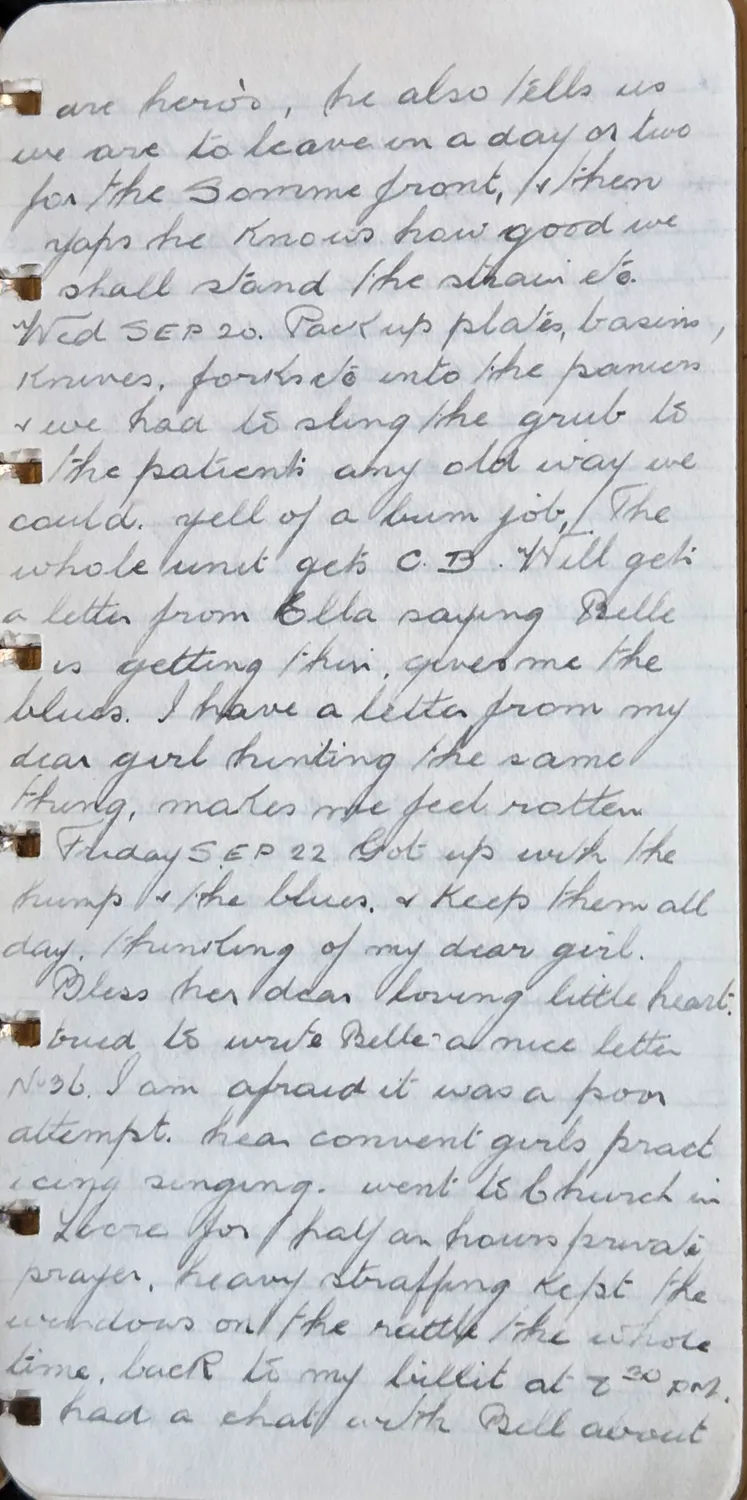 are hero's, he also tells us
we are to leave in a day or two
for the Somme front, & then
yaps he knows how good we
shall stand the strain etc.
Wed SEP 20. Pack up plates, basins,
Knives, forks etc into the paniers
& we had to sling the grub to
the patients any old way we
could. yell of a bum job, The
whole unit gets C.B. Will gets
a letter from Ella saying Belle
is getting thin, gives me the
blues. I have a letter from my
dear girl hinting the same
thing, makes me feel rotten
Friday SEP 22 Got up with the
hump & the blues. & Keep them all
day, thinking of my dear girl.
Bless her dear loving little heart.
tried to write Belle a nice letter
No 36. I am afraid it was a poor
attempt. hear convent girls pract
icing singing. went to Church in
Locre for half an hours private
prayer, heavy straffing kept the
windows on the rattle the whole
time. back to my billit at 7 30 PM.
had a chat with Bell about